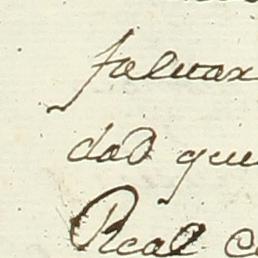 salvar
dad que
Real